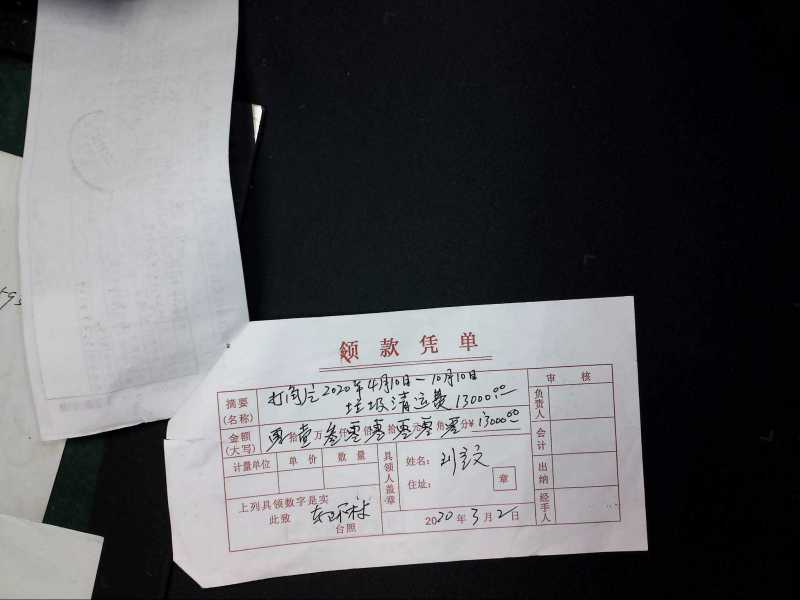 领款凭单
摘要 2020年4月10日一10月10日 审核
(名称) 垃圾清运费13000.00 负责人
金额 零拾壹万叁仟零佰零拾零元零角零分¥13000.00
(大写) 会计
计量单位 单价 数量 具领人盖章 姓名:刘
住址: 章 出纳
上列具领数字是实
此致 台照 2020年3月2日 经手人